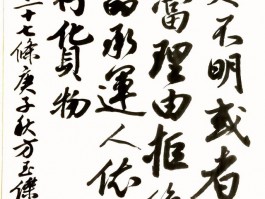 不明或者
當理由拒
的承運人依
貨物
三十七條庚子秋方玉傑